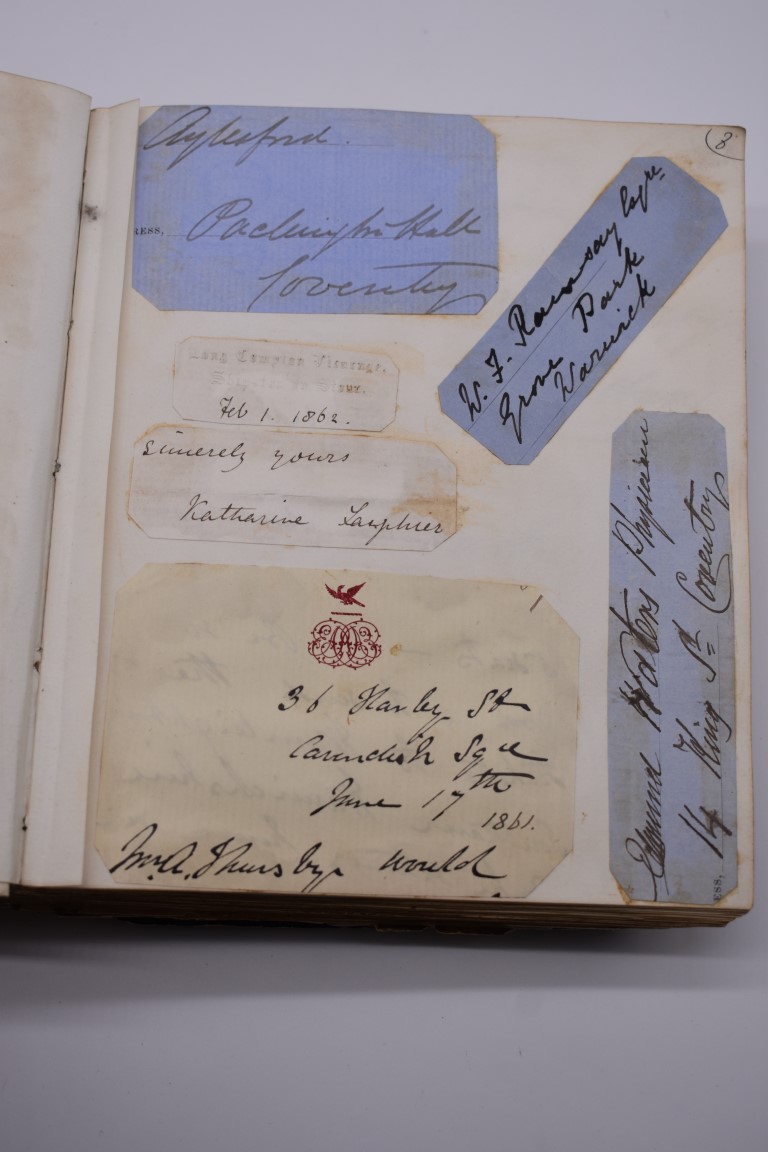 8
Aylesford.
RESS, Packington Hall
Coventry
W. F. Ramsay Esqre
Grove Park
Warwick
Long Compton Vicarage,
Feb 1. 1862.
Sincerely yours
Katharine
Edmund Waters Physician
14 King St Coventry
ESS,
36 Harley St
Cavendish Sqre
June 17th
1861.
Mr A. Thursby would